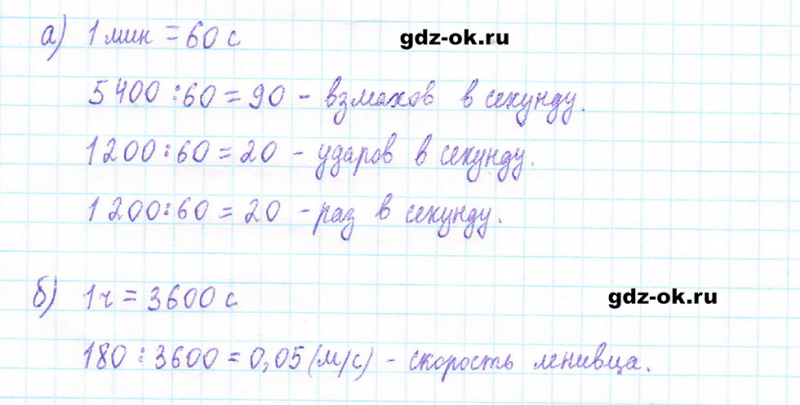 а) 1 мин = 60 с gdz-ok.ru
5400 : 60 = 90 - взмахов в секунду.
1200 : 60 = 20 - ударов в секунду.
1200 : 60 = 20 - раз в секунду.
б) 1 ч = 3600 с gdz-ok.ru
180 : 3600 = 0,05 (м/с) - скорость ленивца.